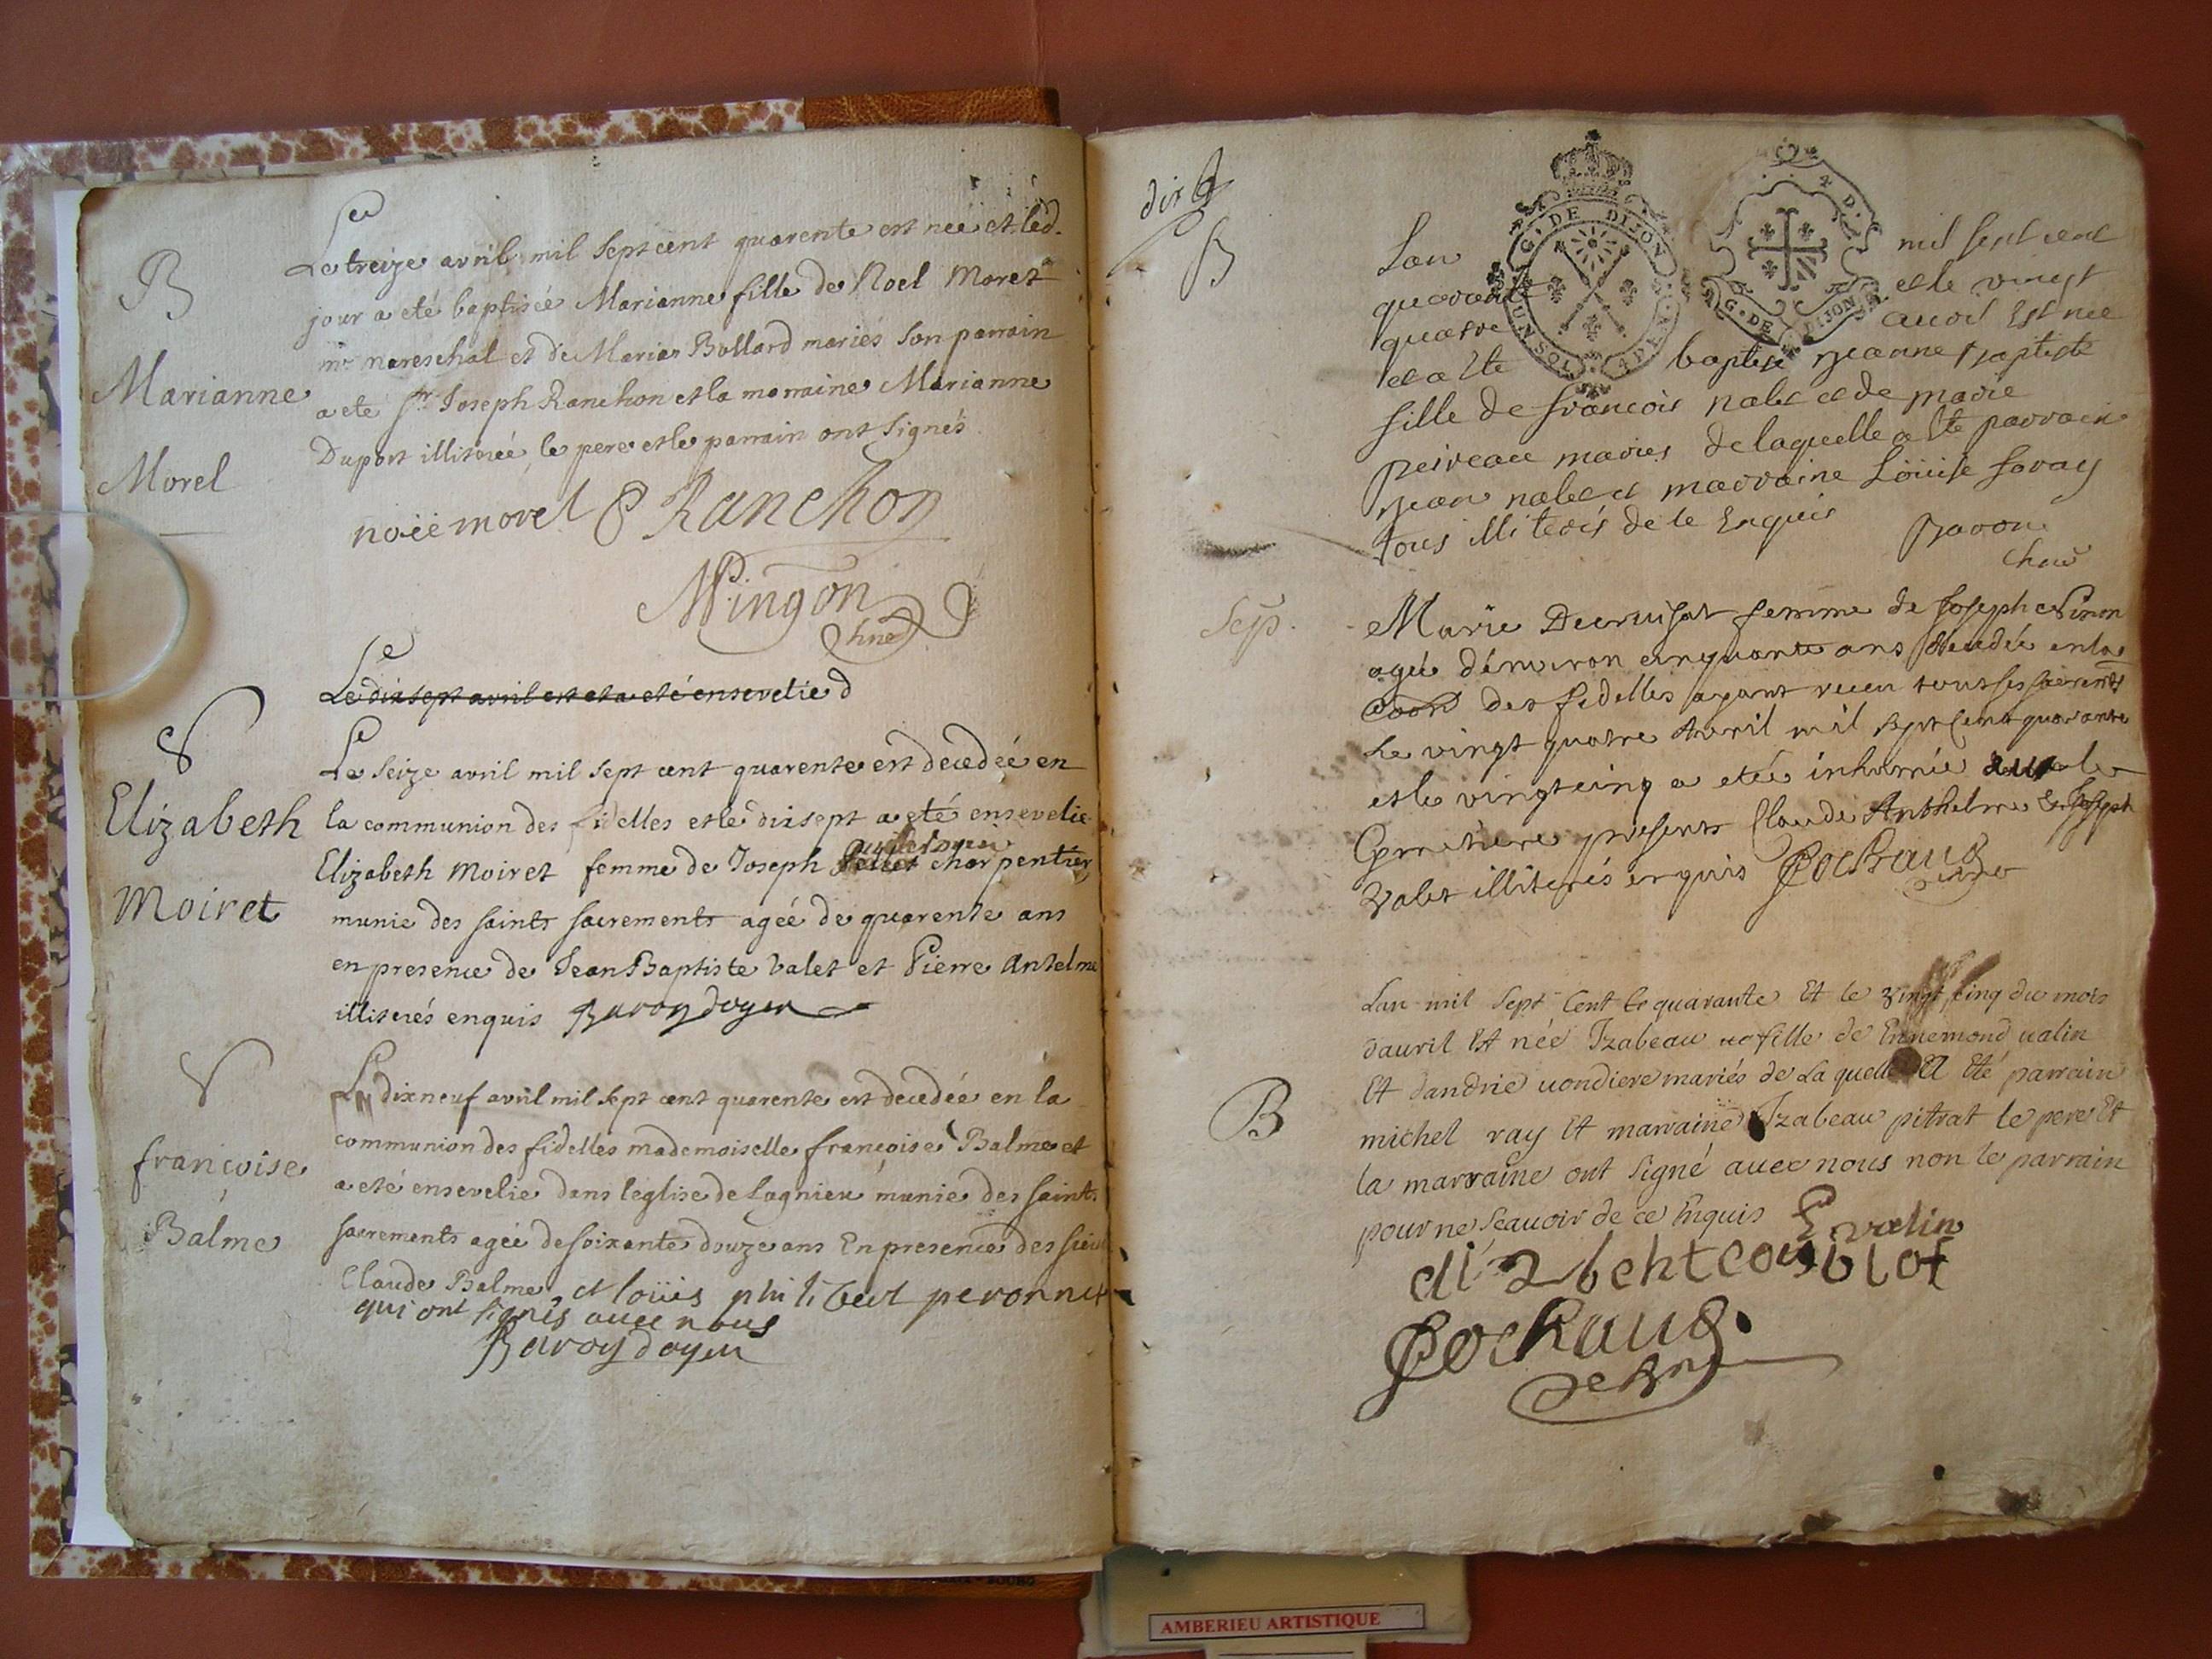 B
Marianne
Morel
Le treize avril mil sept cent quarente est née et led.
jour a eté baptisée Marianne fille de Noel Morel
me mareschal et de Marie Bollard mariés son parrain
a eté sr Joseph Ranchon et la marraine Marianne
Duport illiterée le pere et le parrain ont signés
noël morel Ranchon
Mingon
Le dix sept avril est et a eté ensevelie d
Elizabeth
Moiret
Le seize avril mil sept cent quarente est decedée en
la communion des fidelles et le dixsept a eté ensevelie
Elizabeth Moiret femme de Joseph charpentier
munie des saints sacrements ageé de quarente ans
en presence de Jean Baptiste Valet et Pierre Antelme
illiterés enquis Baron doyen
francoise
Balme
Le dixneuf avril mil sept cent quarente est decedée en la
communion des fidelles mademoiselle francoise Balme et
a eté ensevelie dans leglise de Lagnieu munie des saints
sacrements ageé de soixante douze ans En presence des sieurs
Claude Balme et loüis philibert peronnet
qui ont signés avec nous
Baron doyen
dix
B
G. DE DIJON
UN SOL
G. DE DIJON
Lan mil sept cent
quarante et le vingt
quatre avril Est nee
et a Ete baptise Jeanne baptiste
fille de francois valet et de marie
maries de laquelle a Ete parrain
Jean valet et marraine Loüise
tous illiterés de le Enquis
Baron
Sep.
Marie femme de Joseph
ageé denviron cinquante ans decedée en la
des fidelles ayant receu tous ses sacrements
Le vingt quatre Avril mil sept Cent quarante
et le vingt cinq a eteé inhumée
Cymetiere presents Claude Anthelme et Joseph
Valet illiterés enquis Pochaud
B
Lan mil sept Cent Et quarante Et le vingt cinq du mois
dauril Est née Izabeau fille de Ennemond valin
Et dandrie vondiere mariés de La quelle A Eté parrain
michel ray Et marraine Izabeau pitrat le pere Et
la marraine ont signé avec nous non le parrain
pour ne scavoir de ce Enquis E valin
Pochaud
AMBERIEU ARTISTIQUE